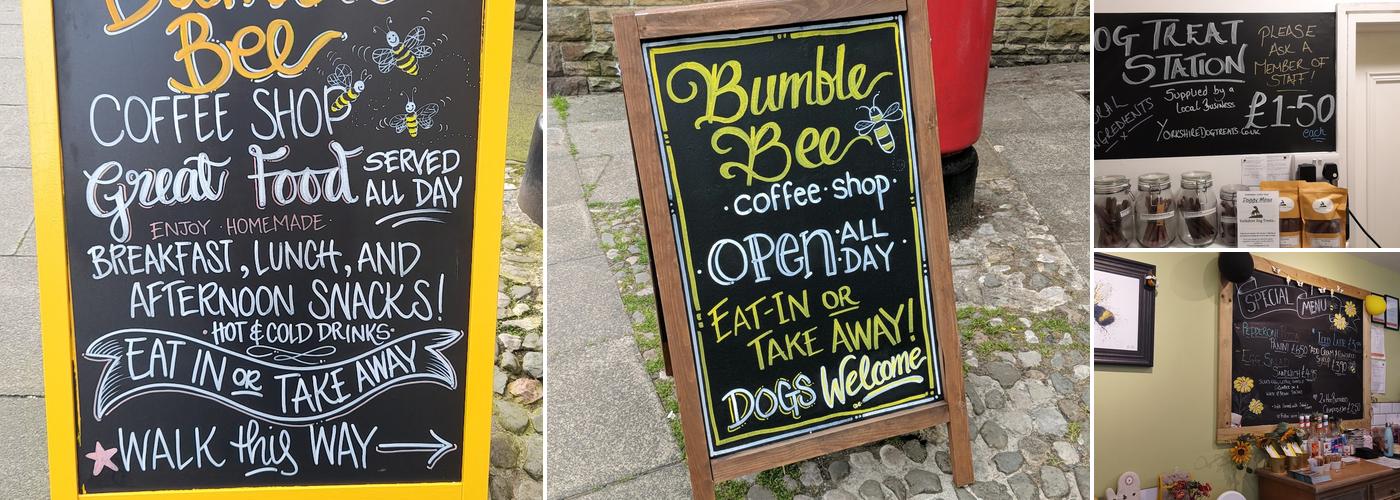 Bee
COFFEE SHOP
Great Food SERVED
ALL DAY
ENJOY HOMEMADE
BREAKFAST, LUNCH, AND
AFTERNOON SNACKS!
HOT & COLD DRINKS
EAT IN OR TAKE AWAY
WALK this WAY
Bumble
Bee
coffee shop
OPEN ALL
DAY
EAT-IN OR
TAKE AWAY!
DOGS Welcome
TREAT
STATION
Supplied by a
Local Business
YORKSHIREDOGTREATS.CO.UK
PLEASE
ASK A
MEMBER OF
STAFF!
£1-50
each
SPECIAL MENU
PEPPERONI
PANINI